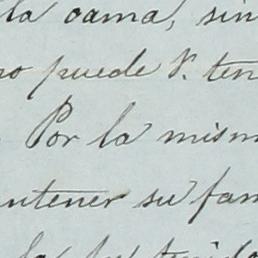 la cama, sin
no puede V. ten
Por la mism
ntener su fam
la ha tenido